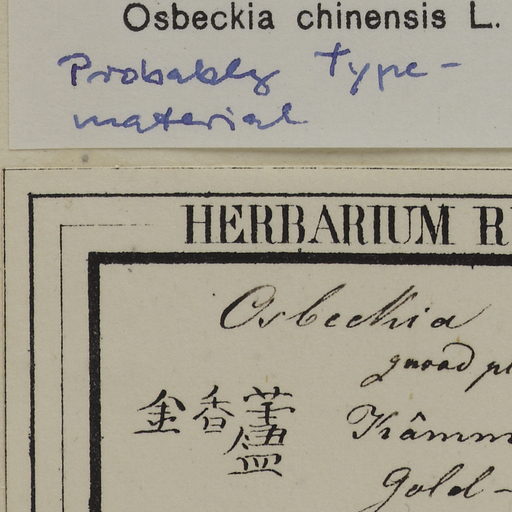 Osbeckia chinensis L.
Probably Type-
material
HERBARIUM R
Osbeckia
quoad pl
金香蘆
Kâmm
Gold-